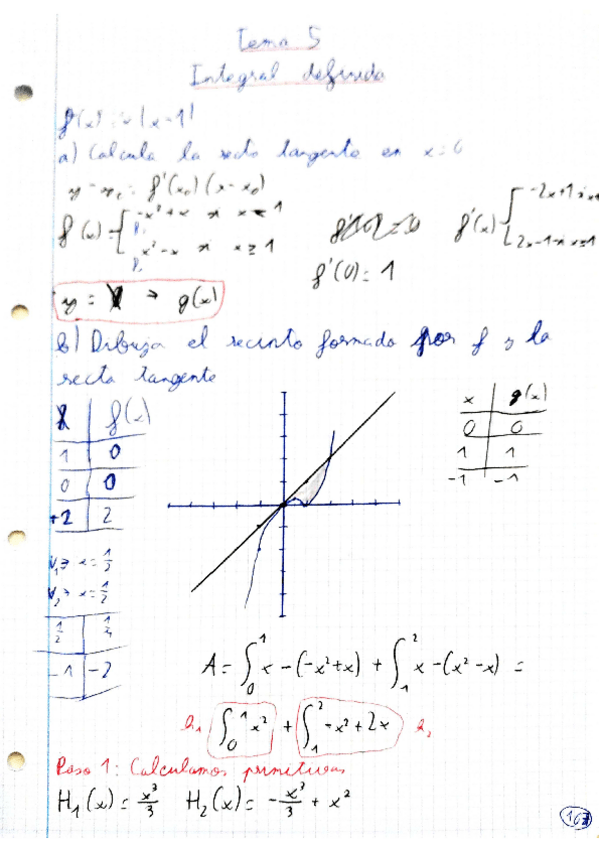 Tema 5
Integral definida
f(x) = x|x-1|
a) Calcula la recta tangente en x=0
y - y₀ = f'(x₀)(x-x₀)
f(x) = { -x²+x si x < 1
x²-x si x ≥ 1
f'(x) { -2x+1 si x<1
2x-1 si x≥1
f'(0) = 1
y = x → g(x)
b) Dibuja el recinto formado por f y la
recta tangente
x | f(x)
1 | 0
0 | 0
+2 | 2
V₁ → x = 1/2
V₂ → x = 1/2
1/2 | 1/4
-1 | -2
x | g(x)
0 | 0
1 | 1
-1 | -1
A = ∫₀¹ x - (-x²+x) + ∫₁² x - (x²-x) =
h₁ ∫₀¹ x² + ∫₁² -x² + 2x h₂
Paso 1: Calculamos primitivas
H₁(x) = x³/3 H₂(x) = -x³/3 + x²